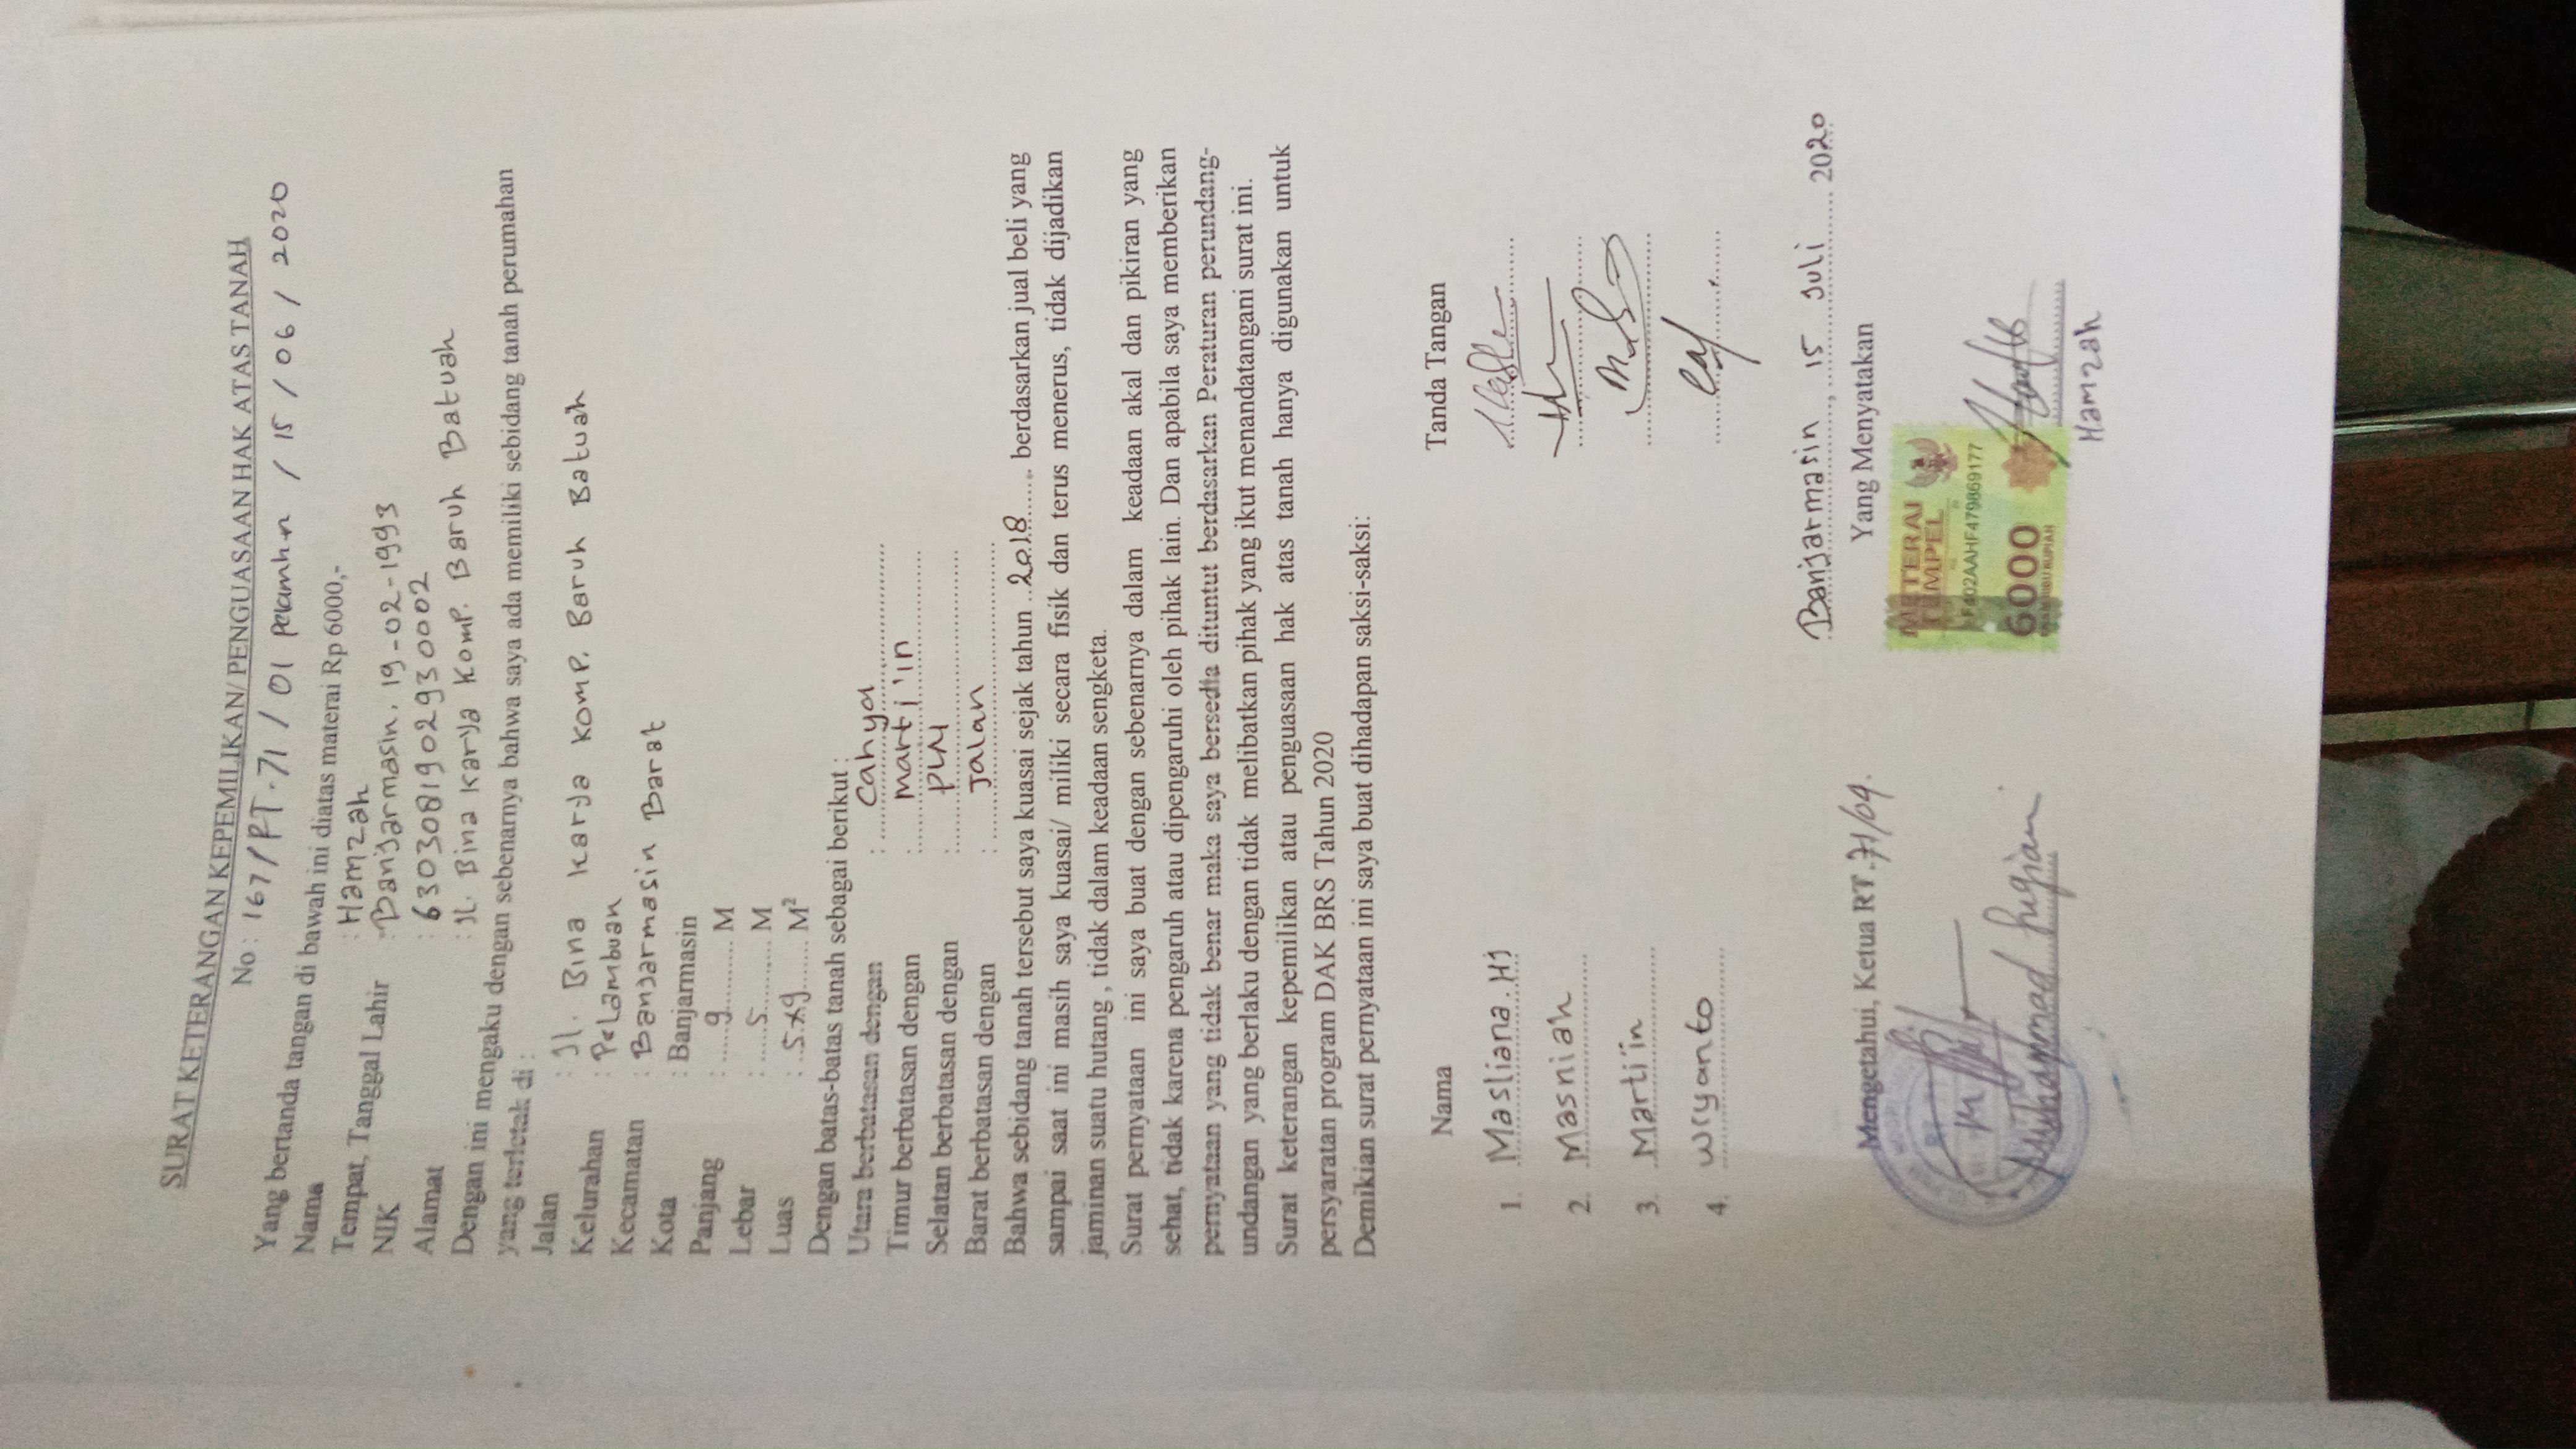 SURAT KETERANGAN KEPEMILIKAN/ PENGUASAAN HAK ATAS TANAH
No : 167/RT.71/01 / 15 / 06 / 2020
Yang bertanda tangan di bawah ini diatas materai Rp 6000,-
Nama : Hamzah
Tempat, Tanggal Lahir : Banjarmasin, 19-02-1993
NIK : 6303081902930002
Alamat : Jl. Bina Karya Komp. Baruh Batuah
Dengan ini mengaku dengan sebenarnya bahwa saya ada memiliki sebidang tanah perumahan
yang terletak di :
Jalan : Jl. Bina Karya Komp. Baruh Batuah
Kelurahan : Pelambuan
Kecamatan : Banjarmasin Barat
Kota : Banjarmasin
Panjang : 9 M
Lebar : 5 M
Luas : 5x9 M²
Dengan batas-batas tanah sebagai berikut :
Utara berbatasan dengan : Cahya
Timur berbatasan dengan : marti'in
Selatan berbatasan dengan :
Barat berbatasan dengan : Jalan
Bahwa sebidang tanah tersebut saya kuasai sejak tahun 2018 berdasarkan jual beli yang
sampai saat ini masih saya kuasai/ miliki secara fisik dan terus menerus, tidak dijadikan
jaminan suatu hutang , tidak dalam keadaan sengketa.
Surat pernyataan ini saya buat dengan sebenarnya dalam keadaan akal dan pikiran yang
sehat, tidak karena pengaruh atau dipengaruhi oleh pihak lain. Dan apabila saya memberikan
pernyataan yang tidak benar maka saya bersedia dituntut berdasarkan Peraturan perundang-
undangan yang berlaku dengan tidak melibatkan pihak yang ikut menandatangani surat ini.
Surat keterangan kepemilikan atau penguasaan hak atas tanah hanya digunakan untuk
persyaratan program DAK BRS Tahun 2020
Demikian surat pernyataan ini saya buat dihadapan saksi-saksi:
Nama Tanda Tangan
1. Masliana.HJ
2. Masniah
3. Martiin
4. Wiyanto
Banjarmasin, 15 Juli 2020
Mengetahui, Ketua RT.71/09. Yang Menyatakan
METERAI
TEMPEL
F402AAHF479869177
6000
ENAM RIBU RUPIAH
Muhammad
Hamzah